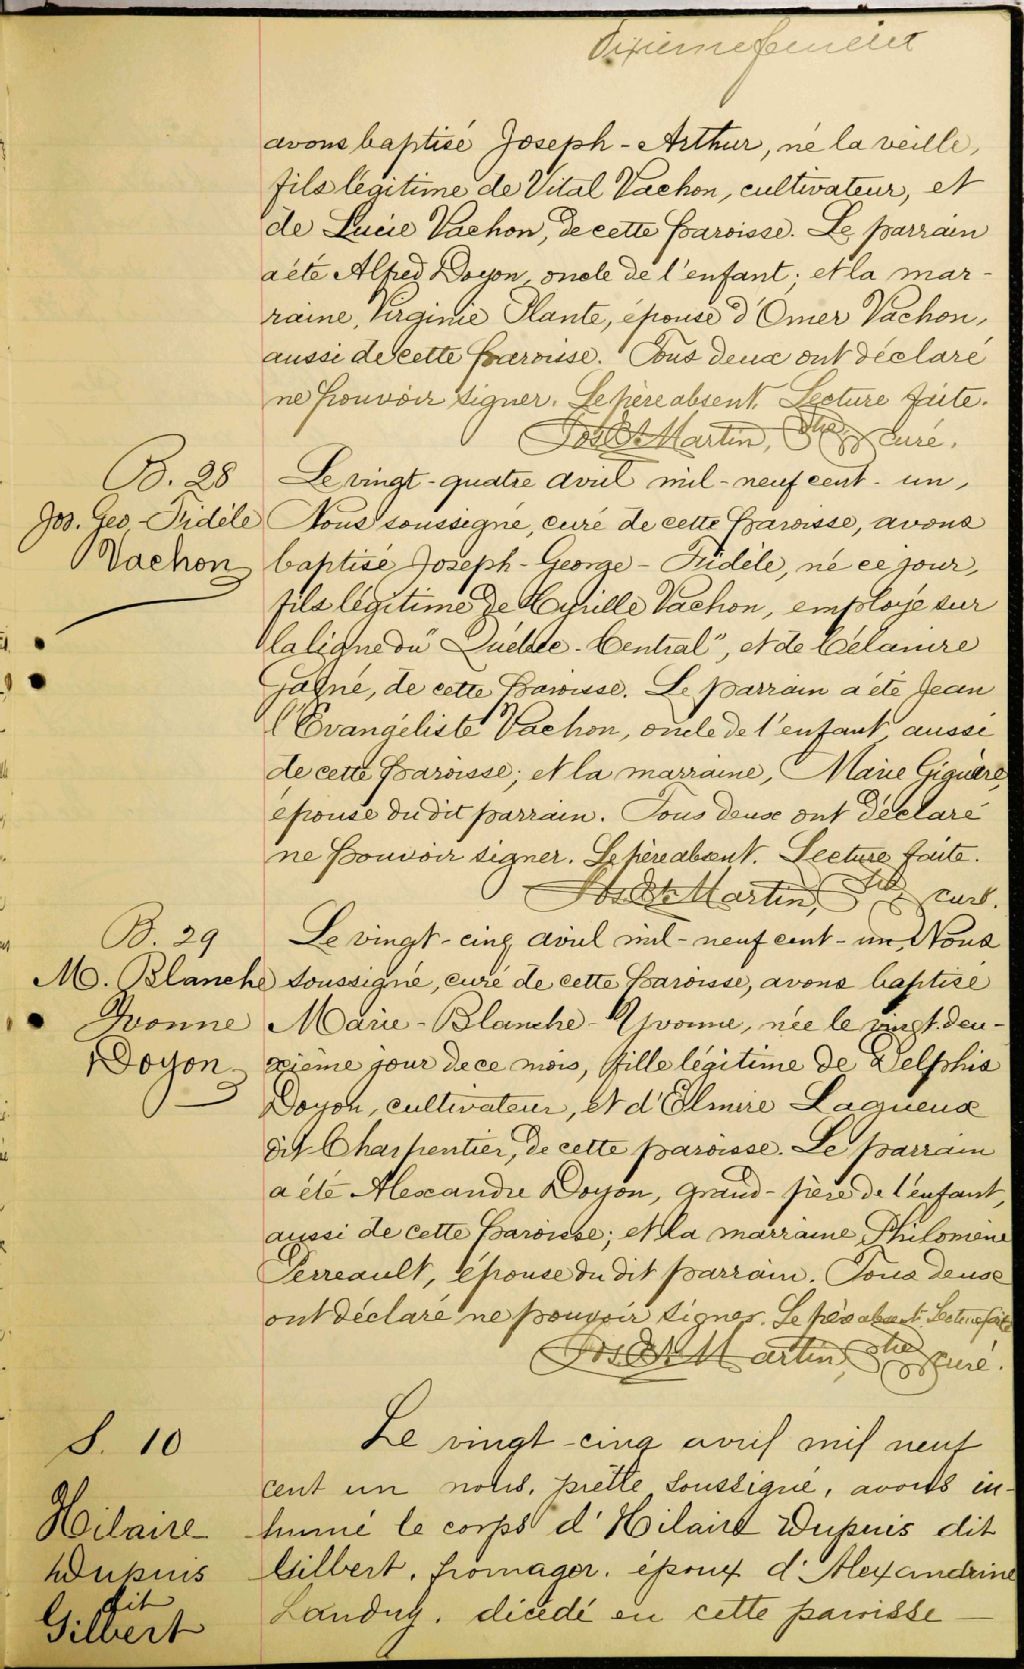 Dixième feuillet
avons baptisé Joseph-Arthur, né la veille,
fils légitime de Vital Vachon, cultivateur, et
de Lucie Vachon, de cette paroisse. Le parrain
a été Alfred Doyon, oncle de l'enfant; et la mar-
raine, Virginie Plante, épouse d'Omer Vachon,
aussi de cette paroisse. Tous deux ont déclaré
ne pouvoir signer. Le père absent. Lecture faite.
Jos. Et. Martin, Ptre curé.
B. 28
Jos. Geo.-Fidèle
Vachon
Le vingt-quatre avril mil-neuf cent-un,
Nous soussigné, curé de cette paroisse, avons
baptisé Joseph-George-Fidèle, né ce jour,
fils légitime de Cyrille Vachon, employé sur
la ligne du "Québec-Central", et de Célanire
Gagné, de cette paroisse. Le parrain a été Jean
l'Evangéliste Vachon, oncle de l'enfant, aussi
de cette paroisse; et la marraine, Marie Giguère,
épouse du dit parrain. Tous deux ont déclaré
ne pouvoir signer. Le père absent. Lecture faite.
Jos. Et. Martin, Ptre curé.
B. 29
M. Blanche
Yvonne
Doyon
Le vingt-cinq avril mil-neuf cent-un, Nous
soussigné, curé de cette paroisse, avons baptisé
Marie-Blanche-Yvonne, née le vingt-deu-
xième jour de ce mois, fille légitime de Delphis
Doyon, cultivateur, et d'Elmire Lagueux
dit Charpentier, de cette paroisse. Le parrain
a été Alexandre Doyon, grand-père de l'enfant,
aussi de cette paroisse; et la marraine Philomène
Perreault, épouse du dit parrain. Tous deux
ont déclaré ne pouvoir signer. Le père absent. Lecture faite
Jos. Et. Martin, Ptre curé.
S. 10
Hilaire
Dupuis
dit
Gilbert
Le vingt-cinq avril mil neuf
cent un nous, prêtre soussigné, avons in-
humé le corps d'Hilaire Dupuis dit
Gilbert, fromager, époux d'Alexandrine
Landry, décédé en cette paroisse